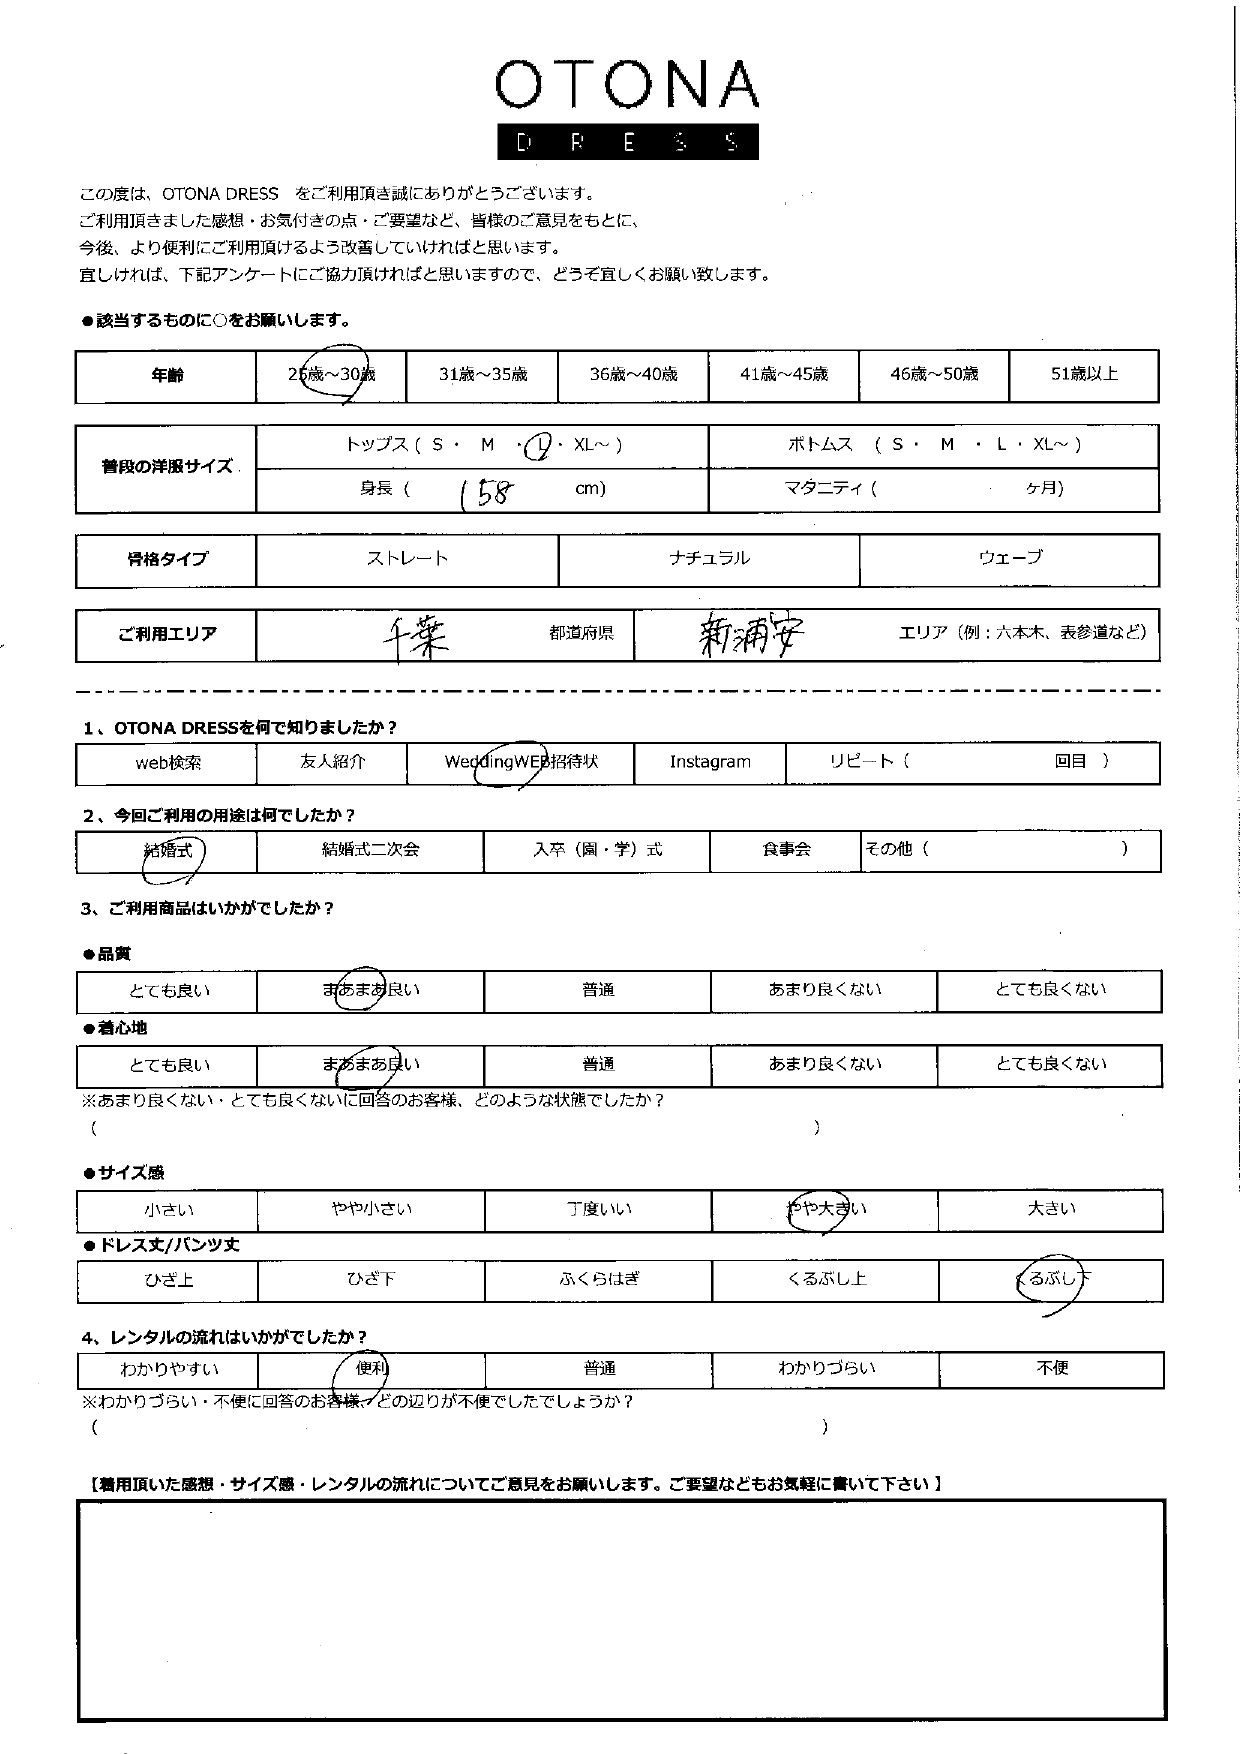 OTONA
DRESS
この度は、OTONA DRESS　をご利用頂き誠にありがとうございます。
ご利用頂きました感想・お気付きの点・ご要望など、皆様のご意見をもとに、
今後、より便利にご利用頂けるよう改善していければと思います。
宜しければ、下記アンケートにご協力頂ければと思いますので、どうぞ宜しくお願い致します。
●該当するものに○をお願いします。
年齢 25歳～30歳 31歳～35歳 36歳～40歳 41歳～45歳 46歳～50歳 51歳以上
普段の洋服サイズ トップス ( S ・ M ・ L ・ XL～ ) ボトムス ( S ・ M ・ L ・ XL～ )
身長 ( 158 cm) マタニティ ( ヶ月)
骨格タイプ ストレート ナチュラル ウェーブ
ご利用エリア 千葉 都道府県 新浦安 エリア（例：六本木、表参道など）
1、OTONA DRESSを何で知りましたか？
web検索 友人紹介 WeddingWEB招待状 Instagram リピート（ 回目 ）
2、今回ご利用の用途は何でしたか？
結婚式 結婚式二次会 入卒（園・学）式 食事会 その他（ ）
3、ご利用商品はいかがでしたか？
●品質
とても良い まあまあ良い 普通 あまり良くない とても良くない
●着心地
とても良い まあまあ良い 普通 あまり良くない とても良くない
※あまり良くない・とても良くないに回答のお客様、どのような状態でしたか？
( )
●サイズ感
小さい やや小さい 丁度いい やや大きい 大きい
●ドレス丈/パンツ丈
ひざ上 ひざ下 ふくらはぎ くるぶし上 くるぶし下
4、レンタルの流れはいかがでしたか？
わかりやすい 便利 普通 わかりづらい 不便
※わかりづらい・不便に回答のお客様、どの辺りが不便でしたでしょうか？
( )
【着用頂いた感想・サイズ感・レンタルの流れについてご意見をお願いします。ご要望などもお気軽に書いて下さい 】